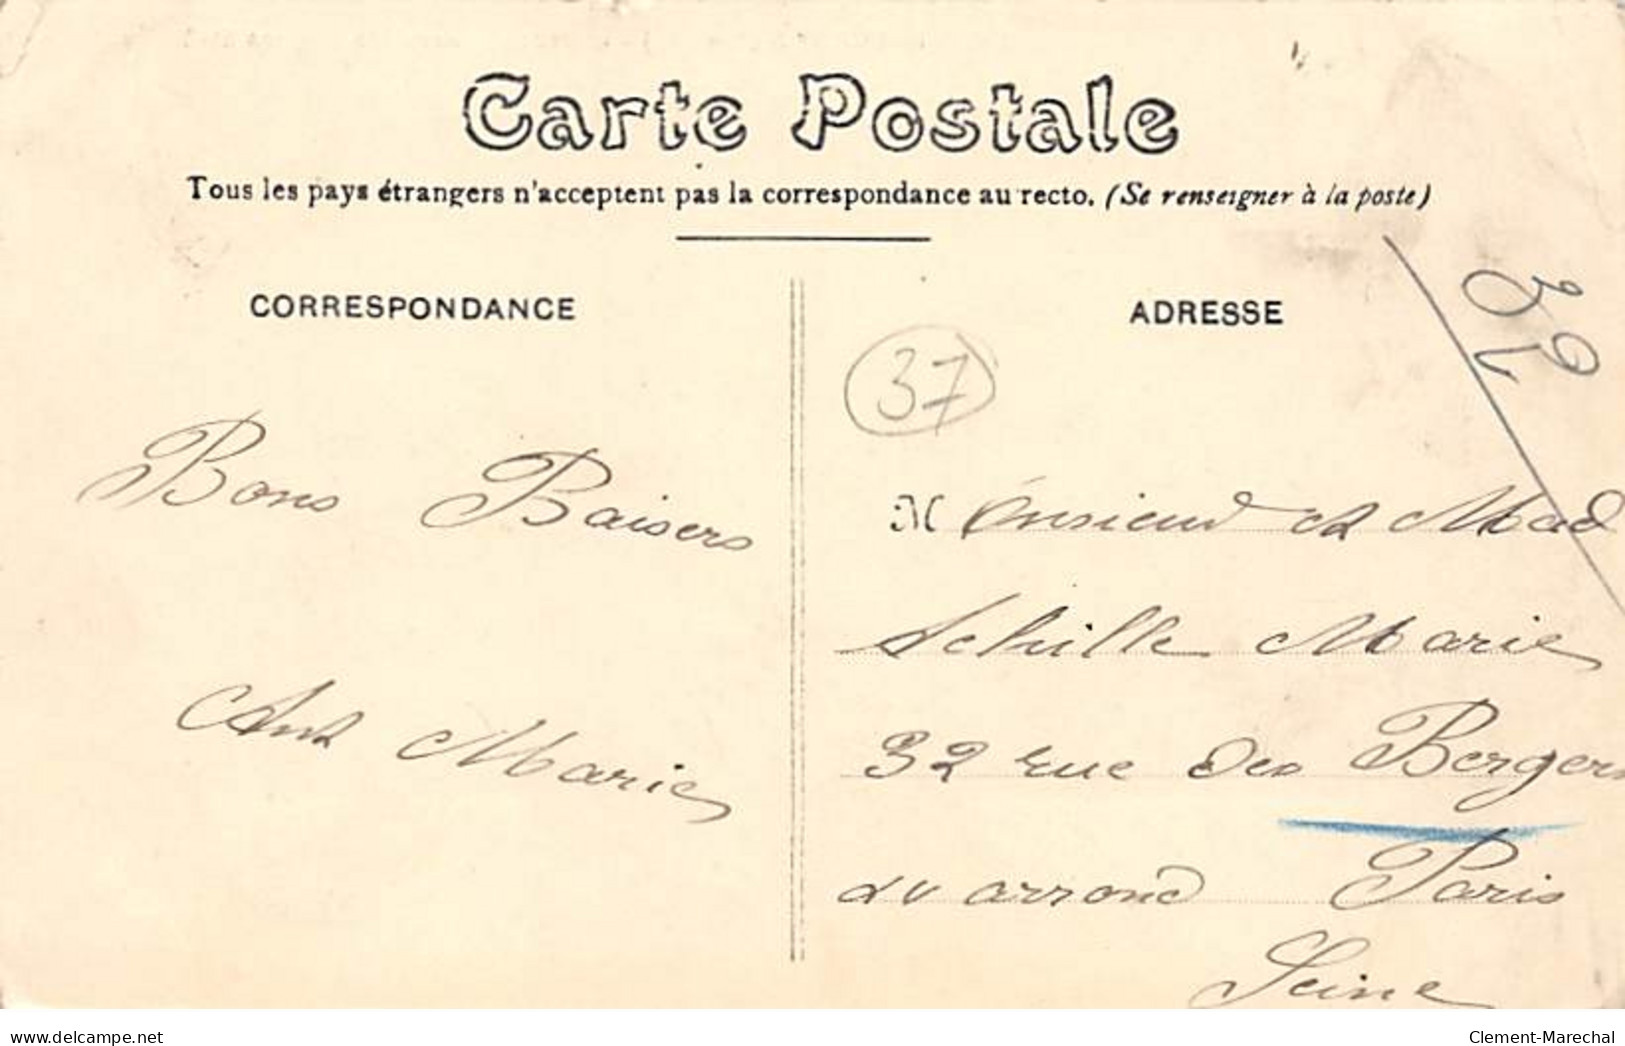 Carte Postale
Tous les pays étrangers n'acceptent pas la correspondance au recto. (Se renseigner à la poste)
CORRESPONDANCE
Bons Baisers
Ant Marie
ADRESSE
37
32
Monsieur et Mad
Achille Marie
32 rue des Bergers
xv arrond Paris
Seine
delcampe.net
Clement-Marechal